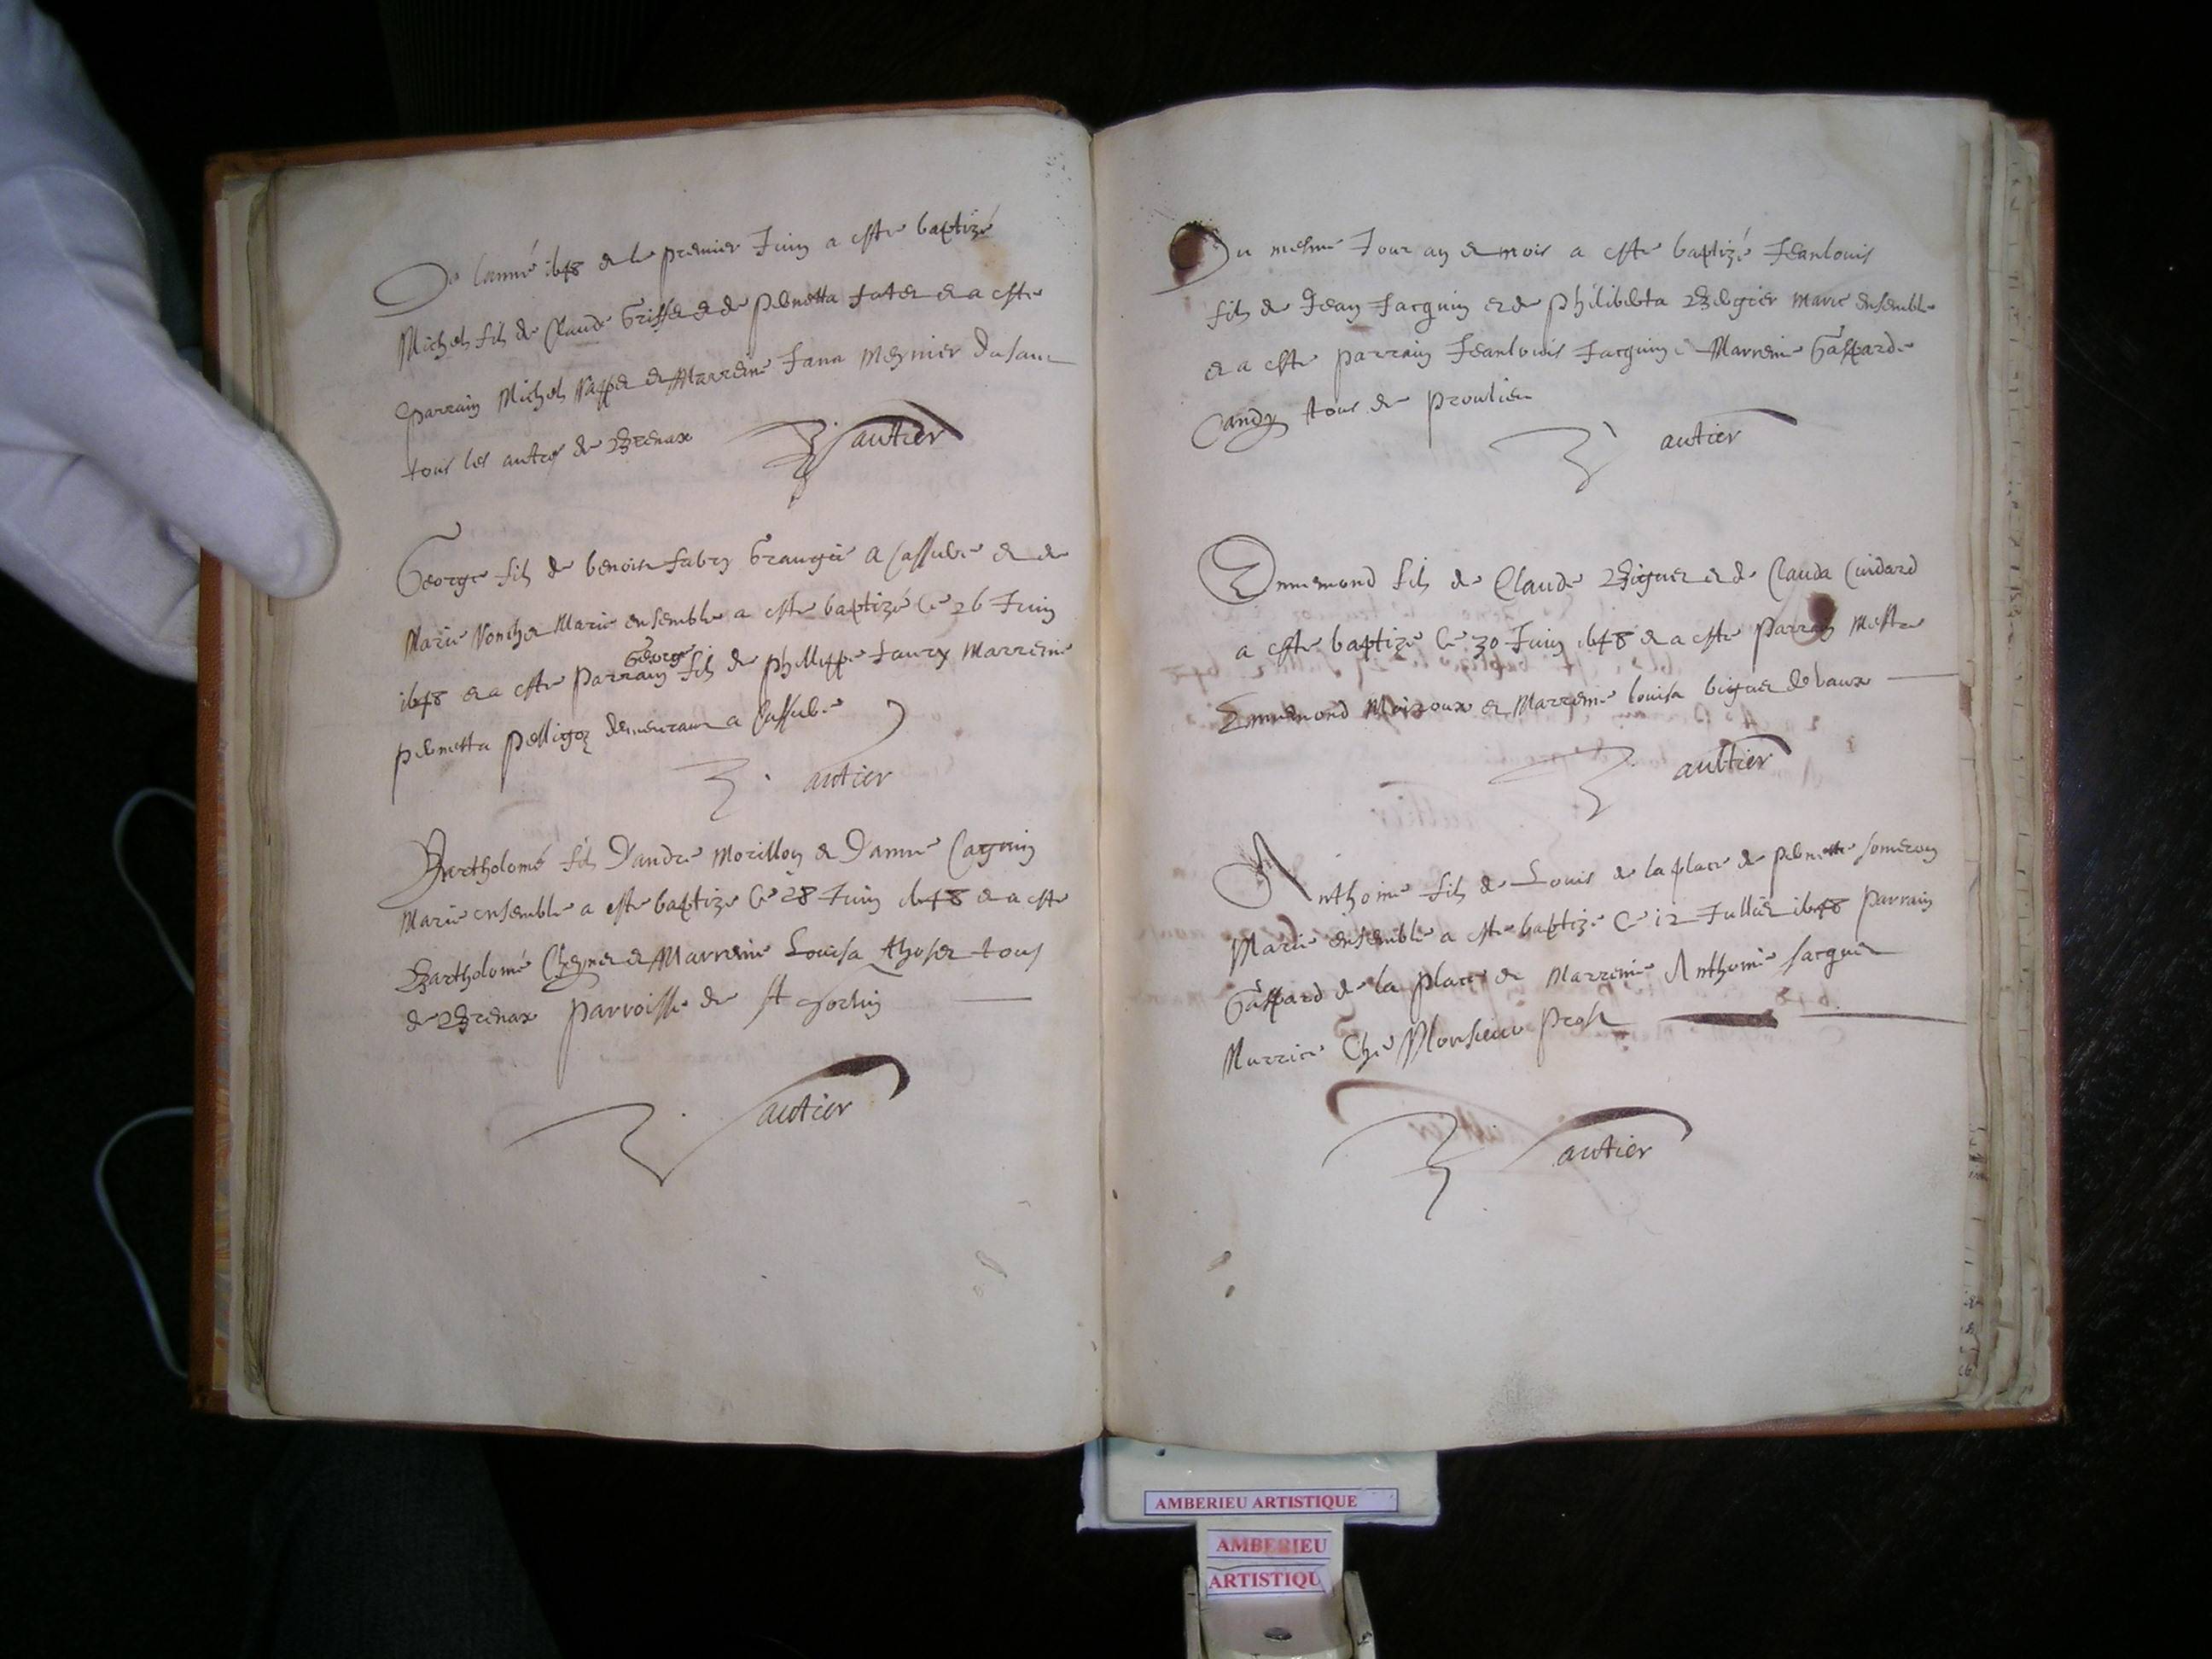 De lanné 1648 et le premier Juin a este baptizé
Michel fils de Claude Griffet et de pernetta et a este
parrain Michel et Marreine Jana Meynier
tous les autres de Brenax
Gautier
George fils de benoist fabry Grangié a Cassubie et de
Marie Marie ensemble a este baptizé le 26 Juin
George
1648 et a este parrain fils de phillippe faury Marreine
pernetta demeurant a Cassubie
Gautier
Bartholomé fils D'andre Morillon et D'anne
Marie ensemble a este baptize le 28 Juin 1648 et a este
Bartholomé et Marreine Louisa tous
de Brenax parroisse de St sorlin
Gautier
Du mesme Jour an et mois a este baptizé Jeanlouis
fils de Jean Jacquin et de philiberta Bergier Marie ensemble
et a este parrain Jeanlouis Jacquin e Marreine Gasparde
Candy tous de proulieu
Gautier
Ennemond fils de Claude Biguet et de Clauda Cuidard
a este baptize le 30 Juin 1648 et a este parrain Mestre
Ennemond et Marreine louisa biguet de vaux
Gaultier
Anthoine fils de Louis de la place de pernette someron
Marie ensemble a este baptize le 12 Jullier 1648 parrain
Gaspard de la place et Marreine Anthoinie Jacquet
Nurrice Ché Monsieur prost
Gautier
AMBERIEU ARTISTIQUE
AMBERIEU
ARTISTIQU